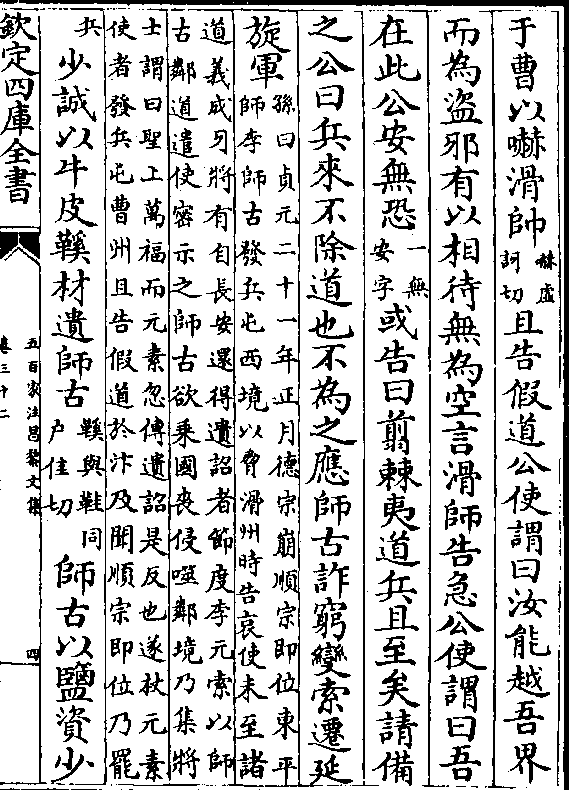 于曹以嚇滑帥赫盧訶切且告假道公使謂曰汝能越吾界
而為盜邪有以相待無為空言滑師告急公使謂曰吾
在此公安無恐一無安字或告曰翦棘夷道兵且至矣請備
之公曰兵來不除道也不為之應師古詐窮變索遷延
旋軍孫曰貞元二十一年正月德宗崩順宗即位東平
師李師古發兵屯西境以脅滑州時告哀使未至諸
道義成牙將有自長安還得遺詔者節度李元素以師
古鄰道遣使密示之師古欲乘國喪侵噬鄰境乃集將
士謂曰聖上萬福而元素忽傳遺詔是反也遂杖元素
使者發兵屯曹州且告假道於汴及聞順宗即位乃罷
兵少誠以牛皮鞵材遺師古鞵與鞋同户佳切師古以鹽資少
欽定四庫全書
五百家注昌黎文集
卷三十二
四